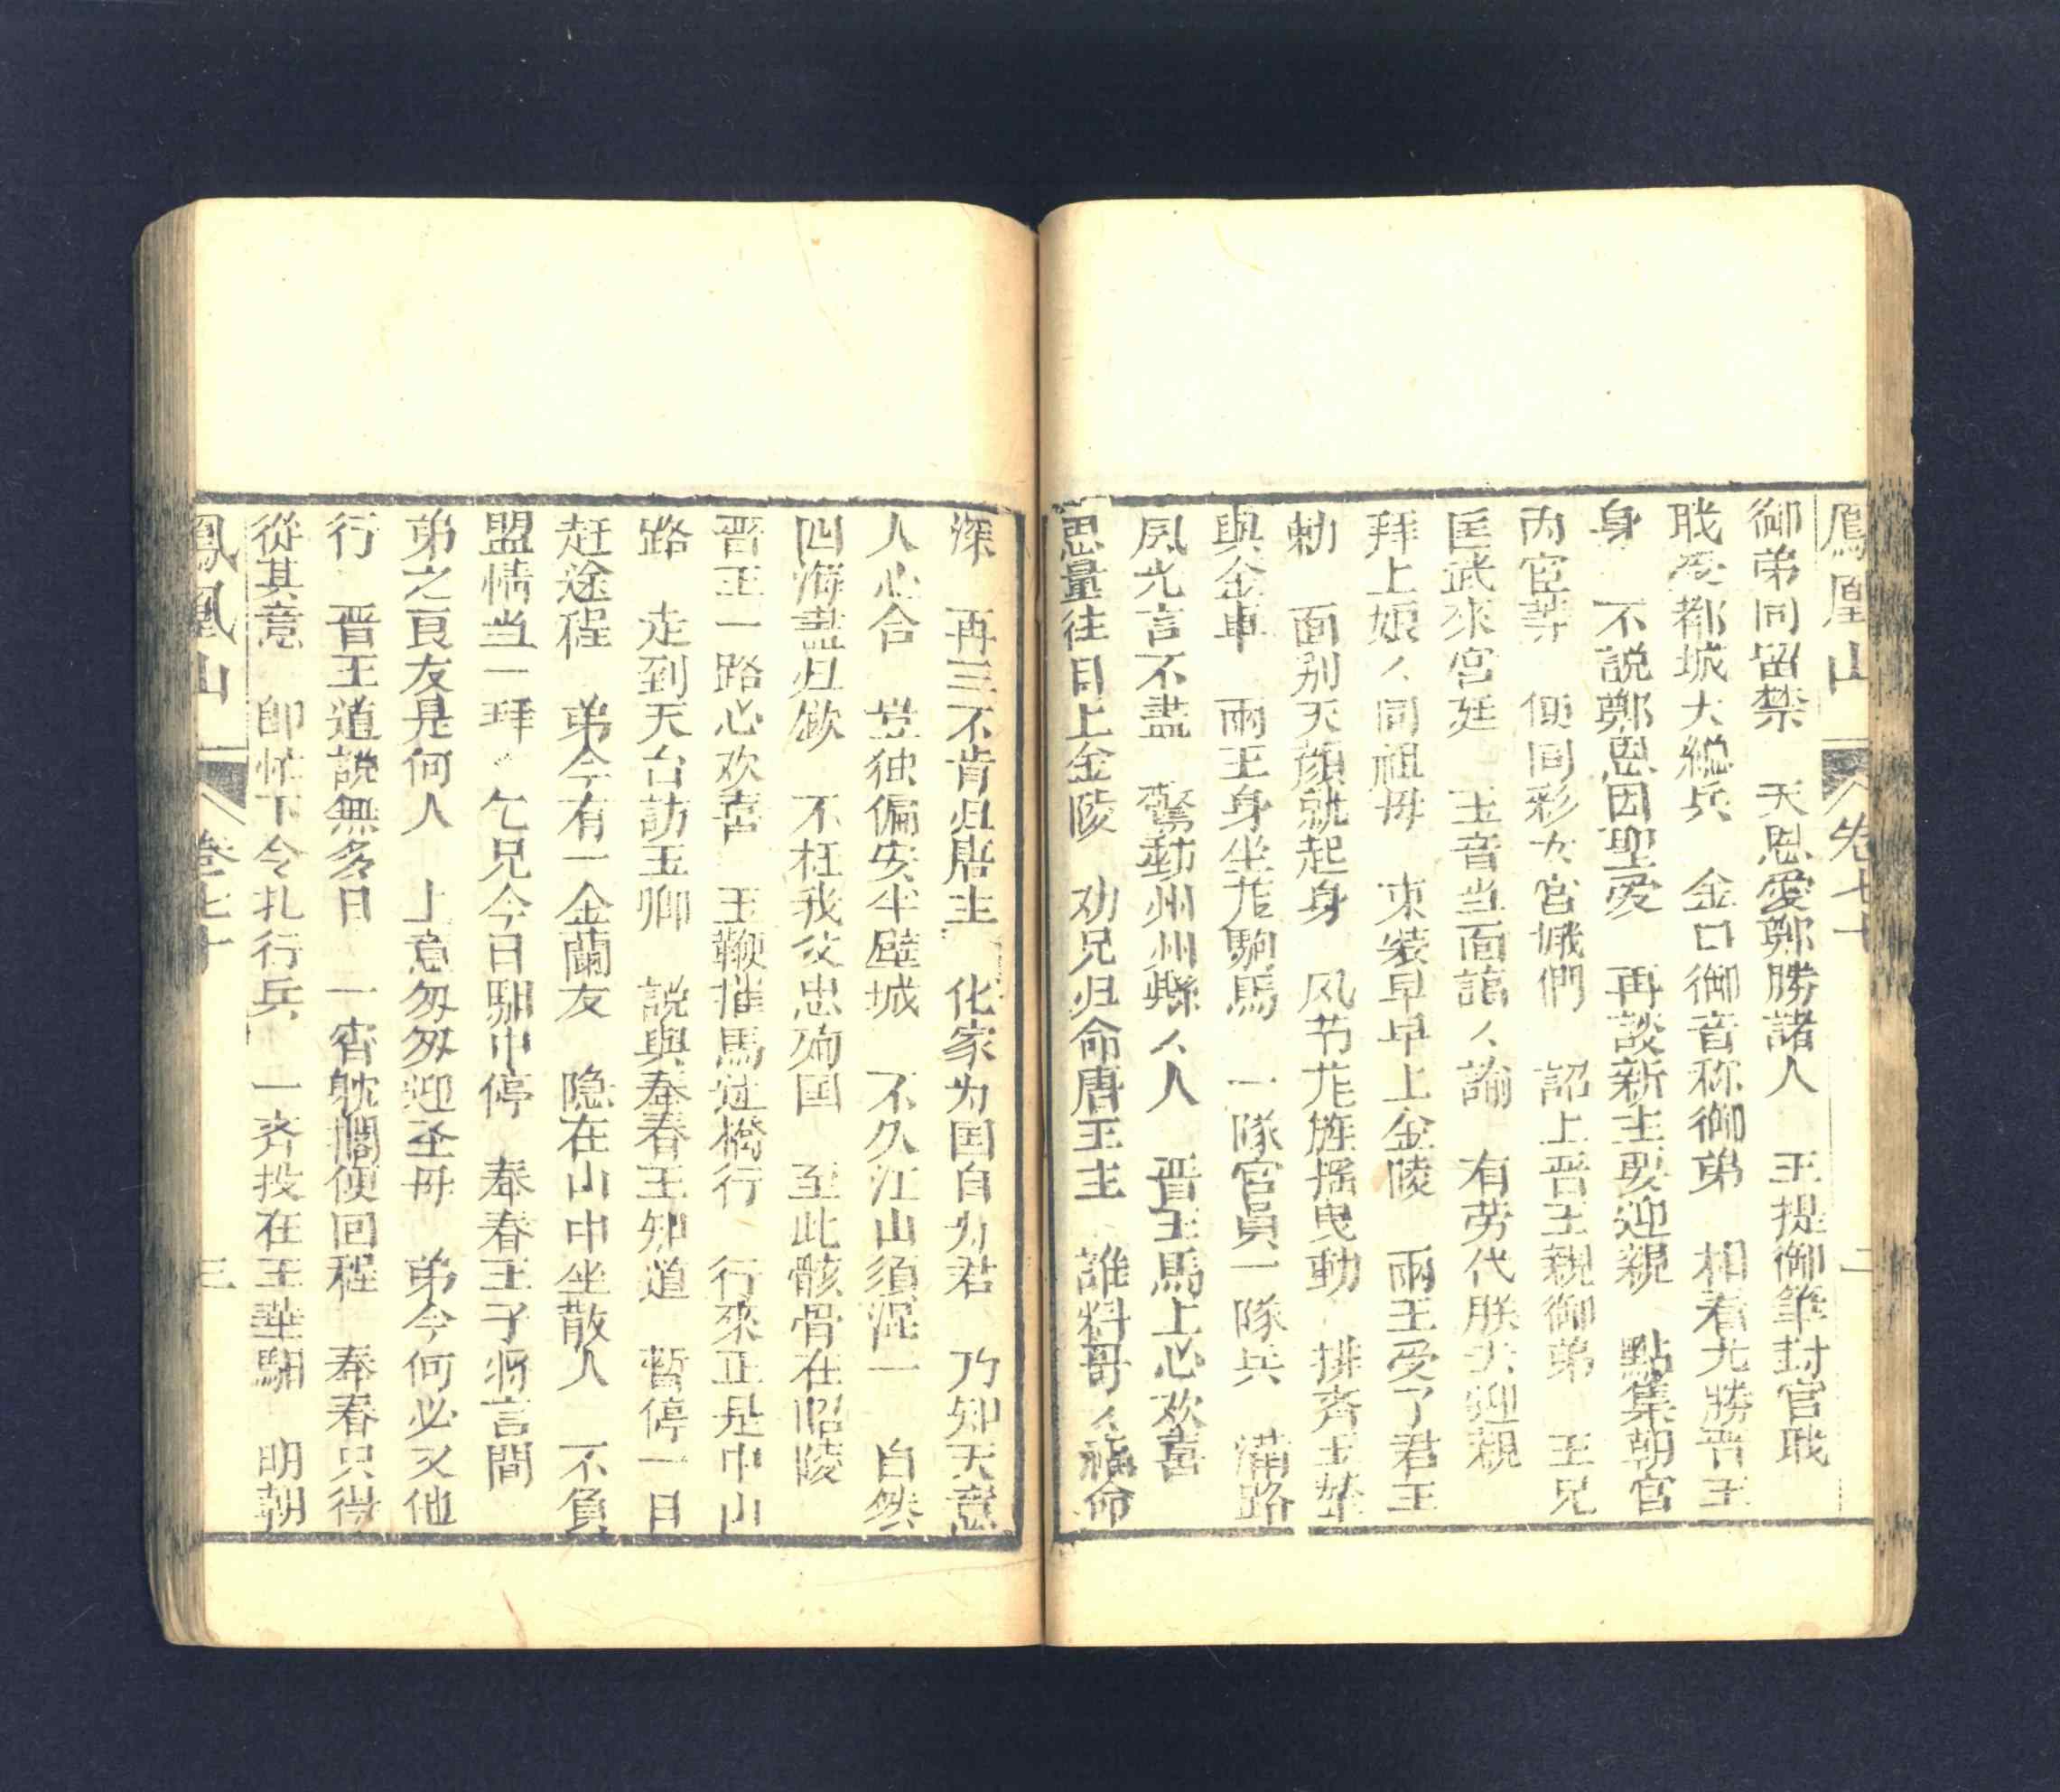 鳳凰山 卷七十 二
御弟同留禁 天恩愛鄭勝諸人 王提御筆封官职
职受都城大総兵 金口御音称御弟 相看尤勝晋王
身 不説鄭恩因聖愛 再談新主娶迎親 點集朝官
内官等 便同彩女宮娥們 詔上晋王親御弟 王兄
匡武來宮廷 玉音当面諠〻諭 有劳代朕去迎親
拜上娘〻同祖母 束裝早早上金陵 兩王受了君王
勅 面别天顔就起身 风节旌旌揺曳動 排齐玉輦
與金車 兩王身坐龙駒馬 一隊官員一隊兵 滿路
風光言不盡 驚動州州縣〻人 晋王馬上心欢喜
思量往日上金陵 劝兄归命唐王主 誰料哥〻福命
深 再三不肯归唐主 化家为国自为君 乃知天意
人心合 岂独偏安半壁城 不久江山須混一 自然
四海盡归欽 不枉我父忠殉国 至此骸骨在昭陵
晋王一路心欢喜 王鞭摧馬过橋行 行來正是中山
路 走到天台訪玉卿 說與奉春王知道 暂停一日
赶途程 弟今有一金蘭友 隐在山中坐散人 不負
盟情当一拜〻 乞兄今日駐巾停 奉春王子將言間
弟之良友是何人 上意匆匆迎圣母 弟今何必又他
行 晋王道說無多日 一宵躭擱便回程 奉春只得
從其意 即忙下令扎行兵 一齐投在王華駟 明朝
鳳凰山 卷七十 三